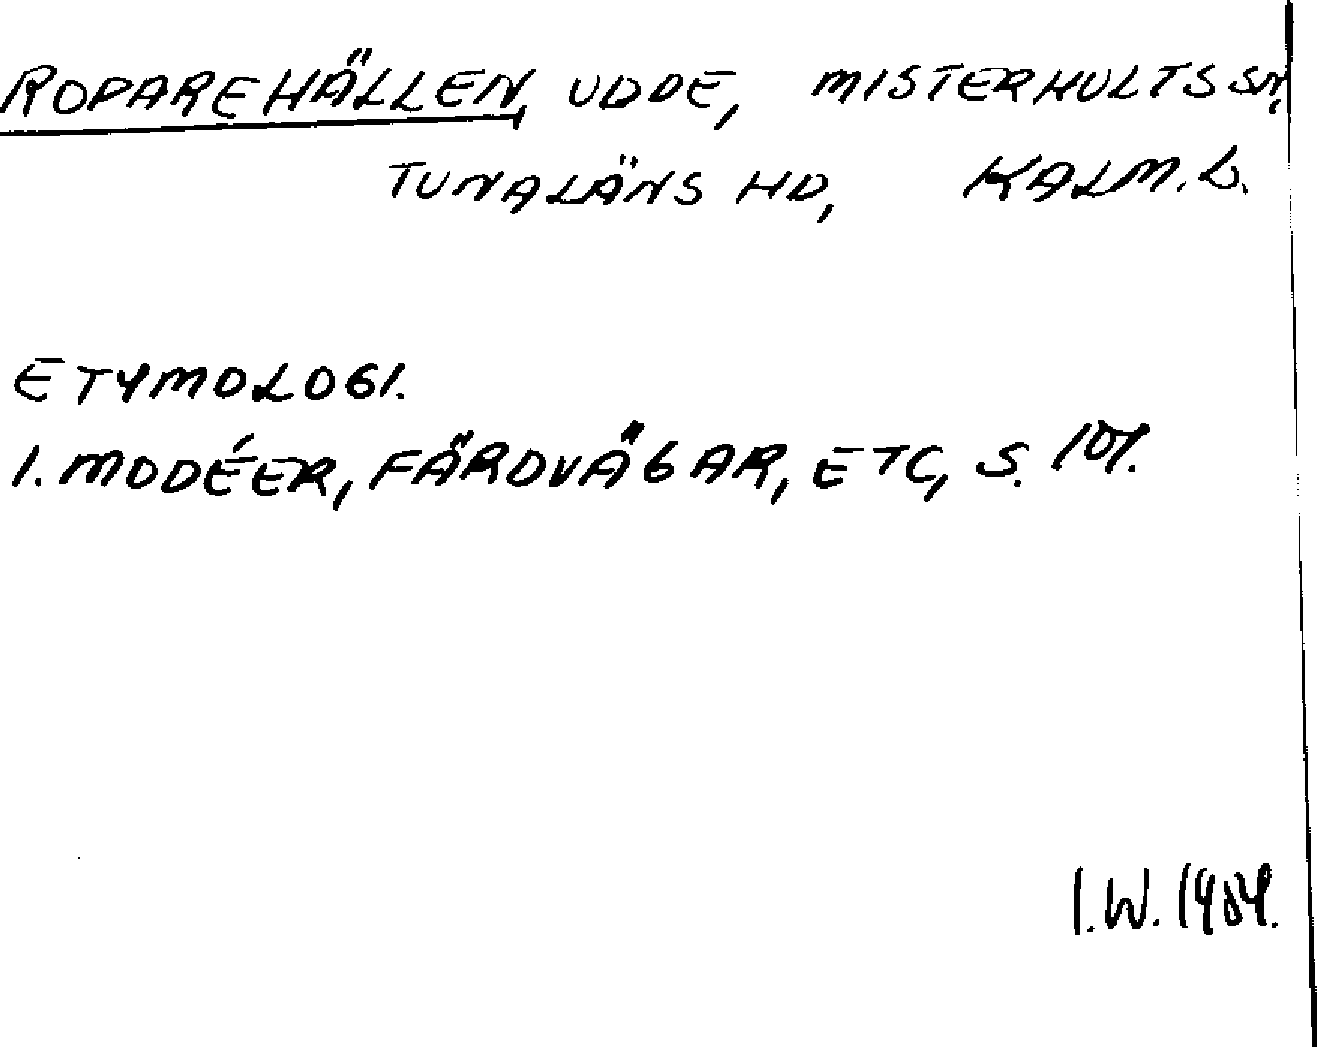 ROPAREHÄLLEN, UDDE, MISTERHULTS SN,
TUNALÄNS HD, KALM. L.
ETYMOLOGI.
I. MODÉER, FÄRDVÄGAR, ETC, S.
I.W.